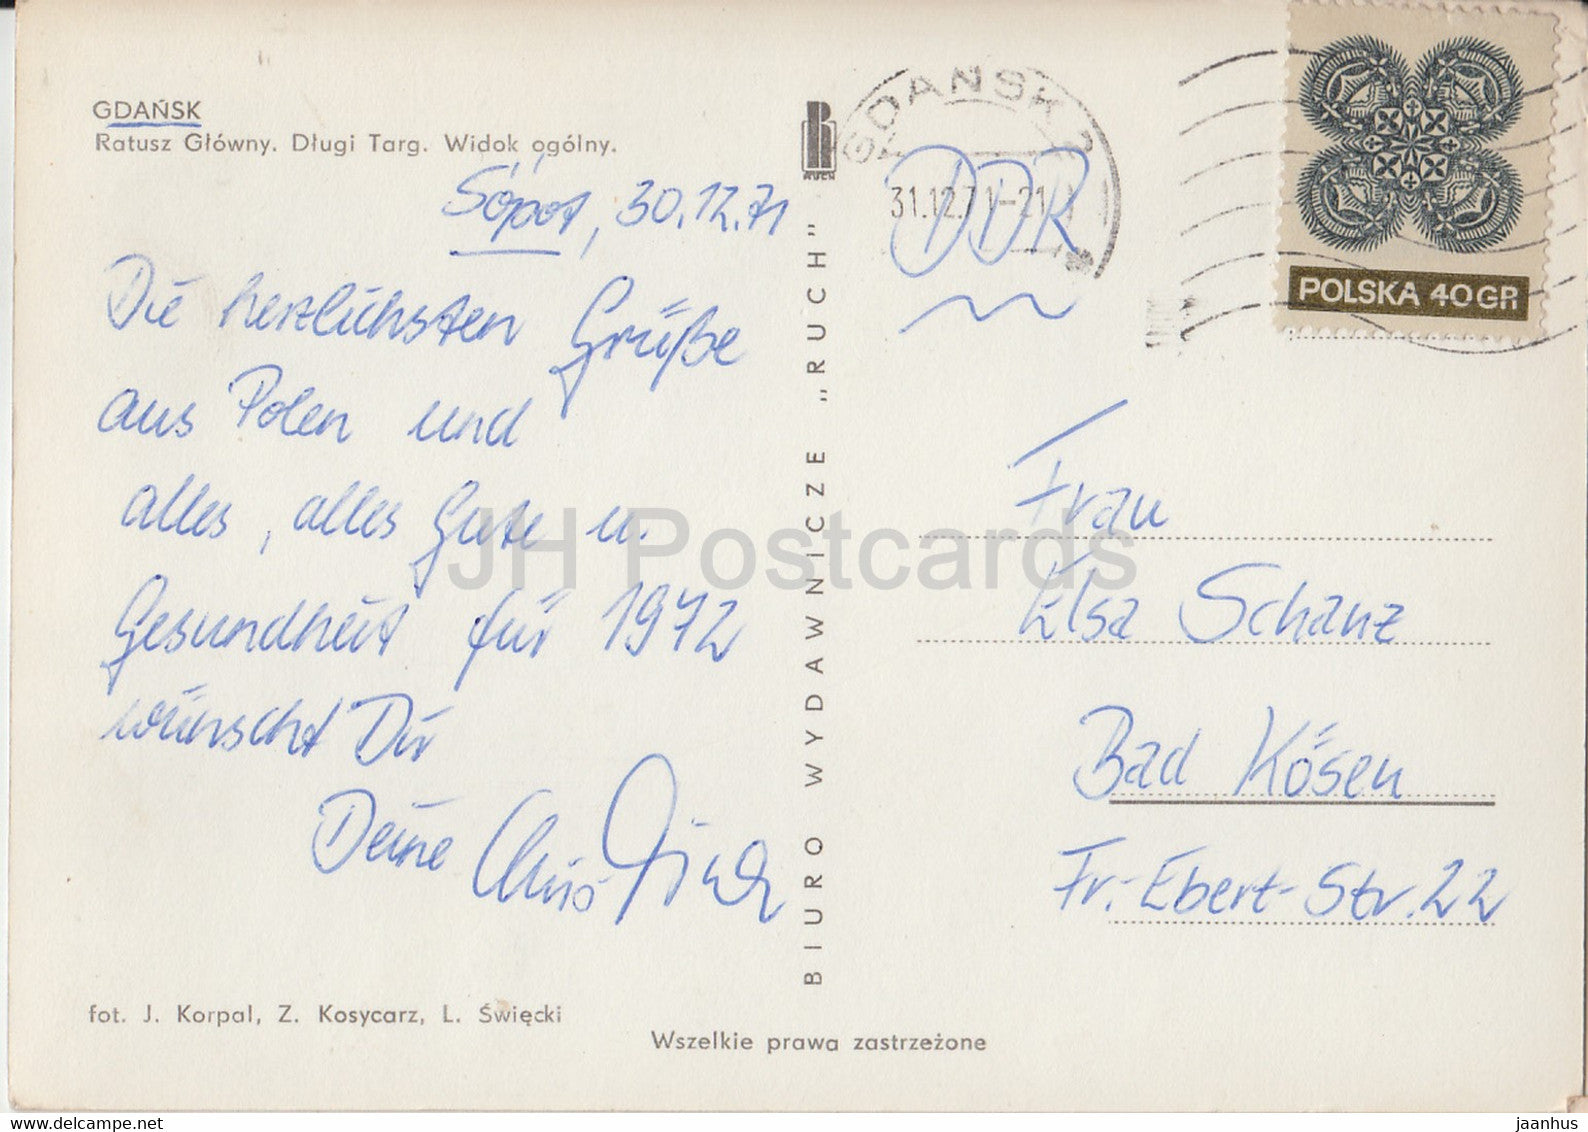 GDAŃSK
Ratusz Główny. Długi Targ. Widok ogólny.
Sópot, 30.12.71
Die herzlichsten Grüße
aus Polen und
alles, alles Gute u.
Gesundheit für 1972
wünscht Dir
Deine
fot. J. Korpal, Z. Kosycarz, L. Święcki
Wszelkie prawa zastrzeżone
BIURO WYDAWNICZE „RUCH"
RUCH
GDAŃSK 2
31.12.71-21
DDR
POLSKA 40GR
Frau
Elsa Schanz
Bad Kösen
Fr.-Ebert-Str. 22
JH Postcards
delcampe.net
jaanhus